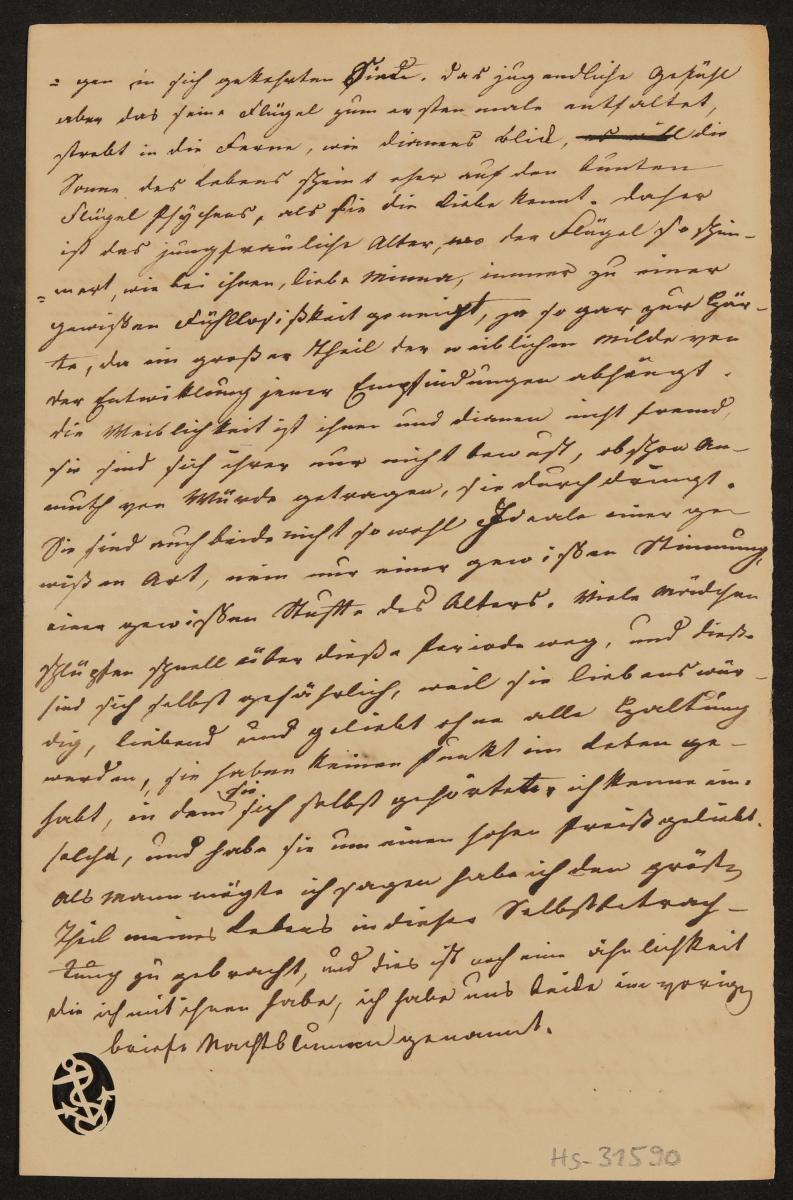 = gen in sich gekehrten Sinne. das jugendliche Gefühl
aber das seine Flügel zum erstenmale entfaltet,
strebt in die Ferne, wie dianens Blick, die
Sonne des Lebens scheint eher auf den bunten
Flügel Psÿchens, als sie die Liebe kennt. daher
ist das jungfräuliche Alter, wo der Flügel so schim-
= mert, wie bei ihnen, liebe Minna, immer zu einer
gewißen Fühllosißkeit geneigt, ja sogar zur Här-
te, da ein großer Theil der weiblichen Milde von
der Entwiklung jener Empfindungen abhängt.
die Weiblichkeit ist ihnen und dianen nicht fremd,
sie sind sich ihrer nur nicht bewust, obschon An-
muth von Würde getragen, sie durchdringt.
Sie sind auch beide nicht sowohl Ideale einer ge-
wißen Art, nein nur einer gewißen Stimmung,
einer gewißen Stuffe des Alters. Viele Mädchen
schlüpfen schnell über dieße Periode weg, und dieße
sind sich selbst gefährlich, weil sie liebenswür-
dig, liebend und geliebt ohne alle Haltung
werden, sie haben keinen Punkt im Leben ge-
habt, in dem sie sich selbst gehörten, ich kenne ein.
solche, und habe sie um einen hohen Preiß geliebt.
Als Mann mögte ich sagen habe ich den grösten
Theil meines Lebens in dieser Selbstbetrach-
tung zu gebracht, und dies ist noch eine ähnlichkeit
die ich mit ihnen habe, ich habe uns beide im vorigen
briefe Nachtblumen genannt.
Hs-31590